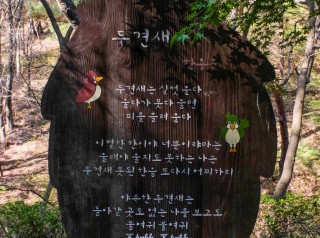 두견새
두견새는 실컷 운다
울다가 못다 울면
피를 흘려 운다
이별한 한이야 너뿐이랴마는
울래야 울지도 못하는 나는
두견새 못된 한을 또다시 어찌하리
야속한 두견새는
돌아갈 곳도 없는 나를 보고도
불여귀 불여귀